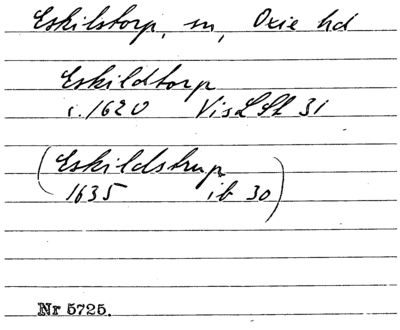 Eskilstorp, sn, Oxie hd
Eskildtorp
c. 1620 VisLSk 31
(Eskildstrup
1635 ib 30)
Nr 5725.